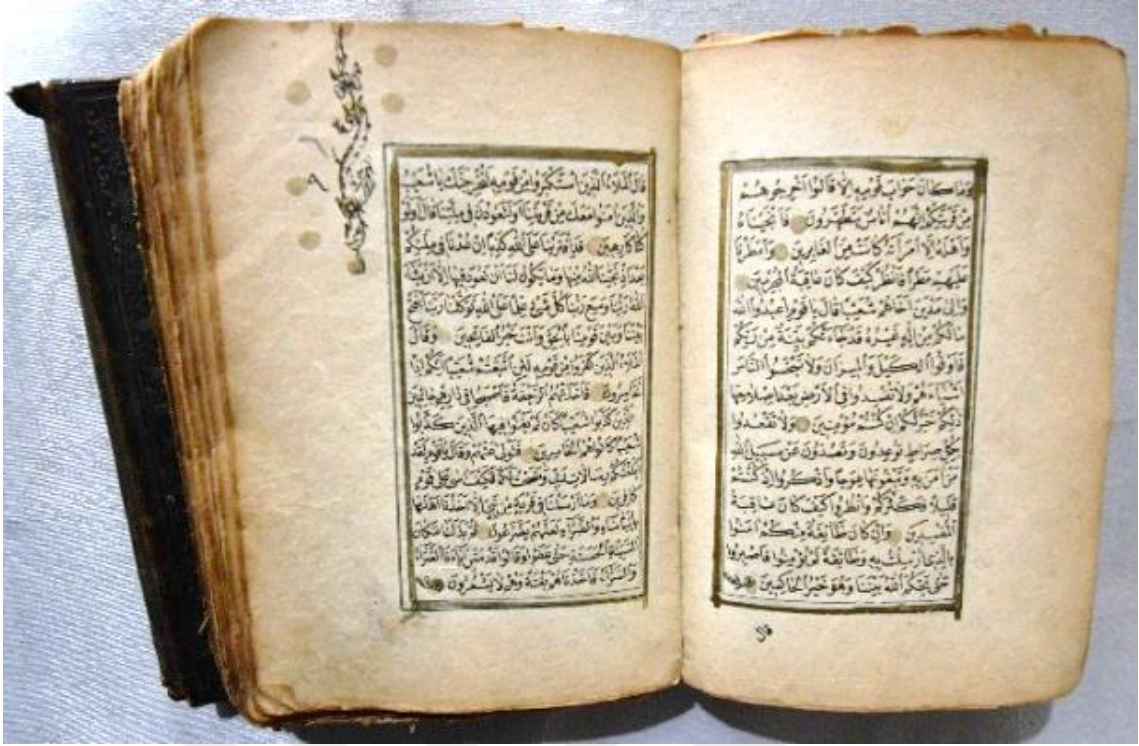 وما كان جواب قومه الا قالوا اخرجوهم
من قريتكم انهم اناس يتطهرون فانجيناه
واهله الا امرأته كانت من الغابرين وامطرنا
عليهم مطرا فانظر كيف كان عاقبة المجرمين
والى مدين اخاهم شعيبا قال يا قوم اعبدوا الله
ما لكم من اله غيره قد جاءتكم بينة من ربكم
فاوفوا الكيل والميزان ولا تبخسوا الناس
اشياءهم ولا تفسدوا في الارض بعد اصلاحها
ذلكم خير لكم ان كنتم مؤمنين ولا تقعدوا
بكل صراط توعدون وتصدون عن سبيل الله
من امن به وتبغونها عوجا واذكروا اذ كنتم
قليلا فكثركم وانظروا كيف كان عاقبة
المفسدين وان كان طائفة منكم امنوا
بالذي ارسلت به وطائفة لم يؤمنوا فاصبروا
حتى يحكم الله بيننا وهو خير الحاكمين
قال
قال الملاء الذين استكبروا من قومه لنخرجنك يا شعيب
والذين امنوا معك من قريتنا او لتعودن في ملتنا قال اولو
كنا كارهين قد افترينا على الله كذبا ان عدنا في ملتكم
بعد اذ نجينا الله منها وما يكون لنا ان نعود فيها الا ان يشاء
الله ربنا وسع ربنا كل شيء علما على الله توكلنا ربنا افتح
بيننا وبين قومنا بالحق وانت خير الفاتحين وقال
الملاء الذين كفروا من قومه لئن اتبعتم شعيبا انكم اذا
لخاسرون فاخذتهم الرجفة فاصبحوا في دارهم جاثمين
الذين كذبوا شعيبا كان لم يغنوا فيها الذين كذبوا
شعيبا كانوا هم الخاسرين فتولى عنهم وقال يا قوم لقد
ابلغتكم رسالات ربي ونصحت لكم فكيف اسى على قوم
كافرين وما ارسلنا في قرية من نبي الا اخذنا اهلها
بالباساء والضراء لعلهم يضرعون ثم بدلنا مكان
السيئة الحسنة حتى عفوا وقالوا قد مس اباءنا الضراء
والسراء فاخذناهم بغتة وهم لا يشعرون